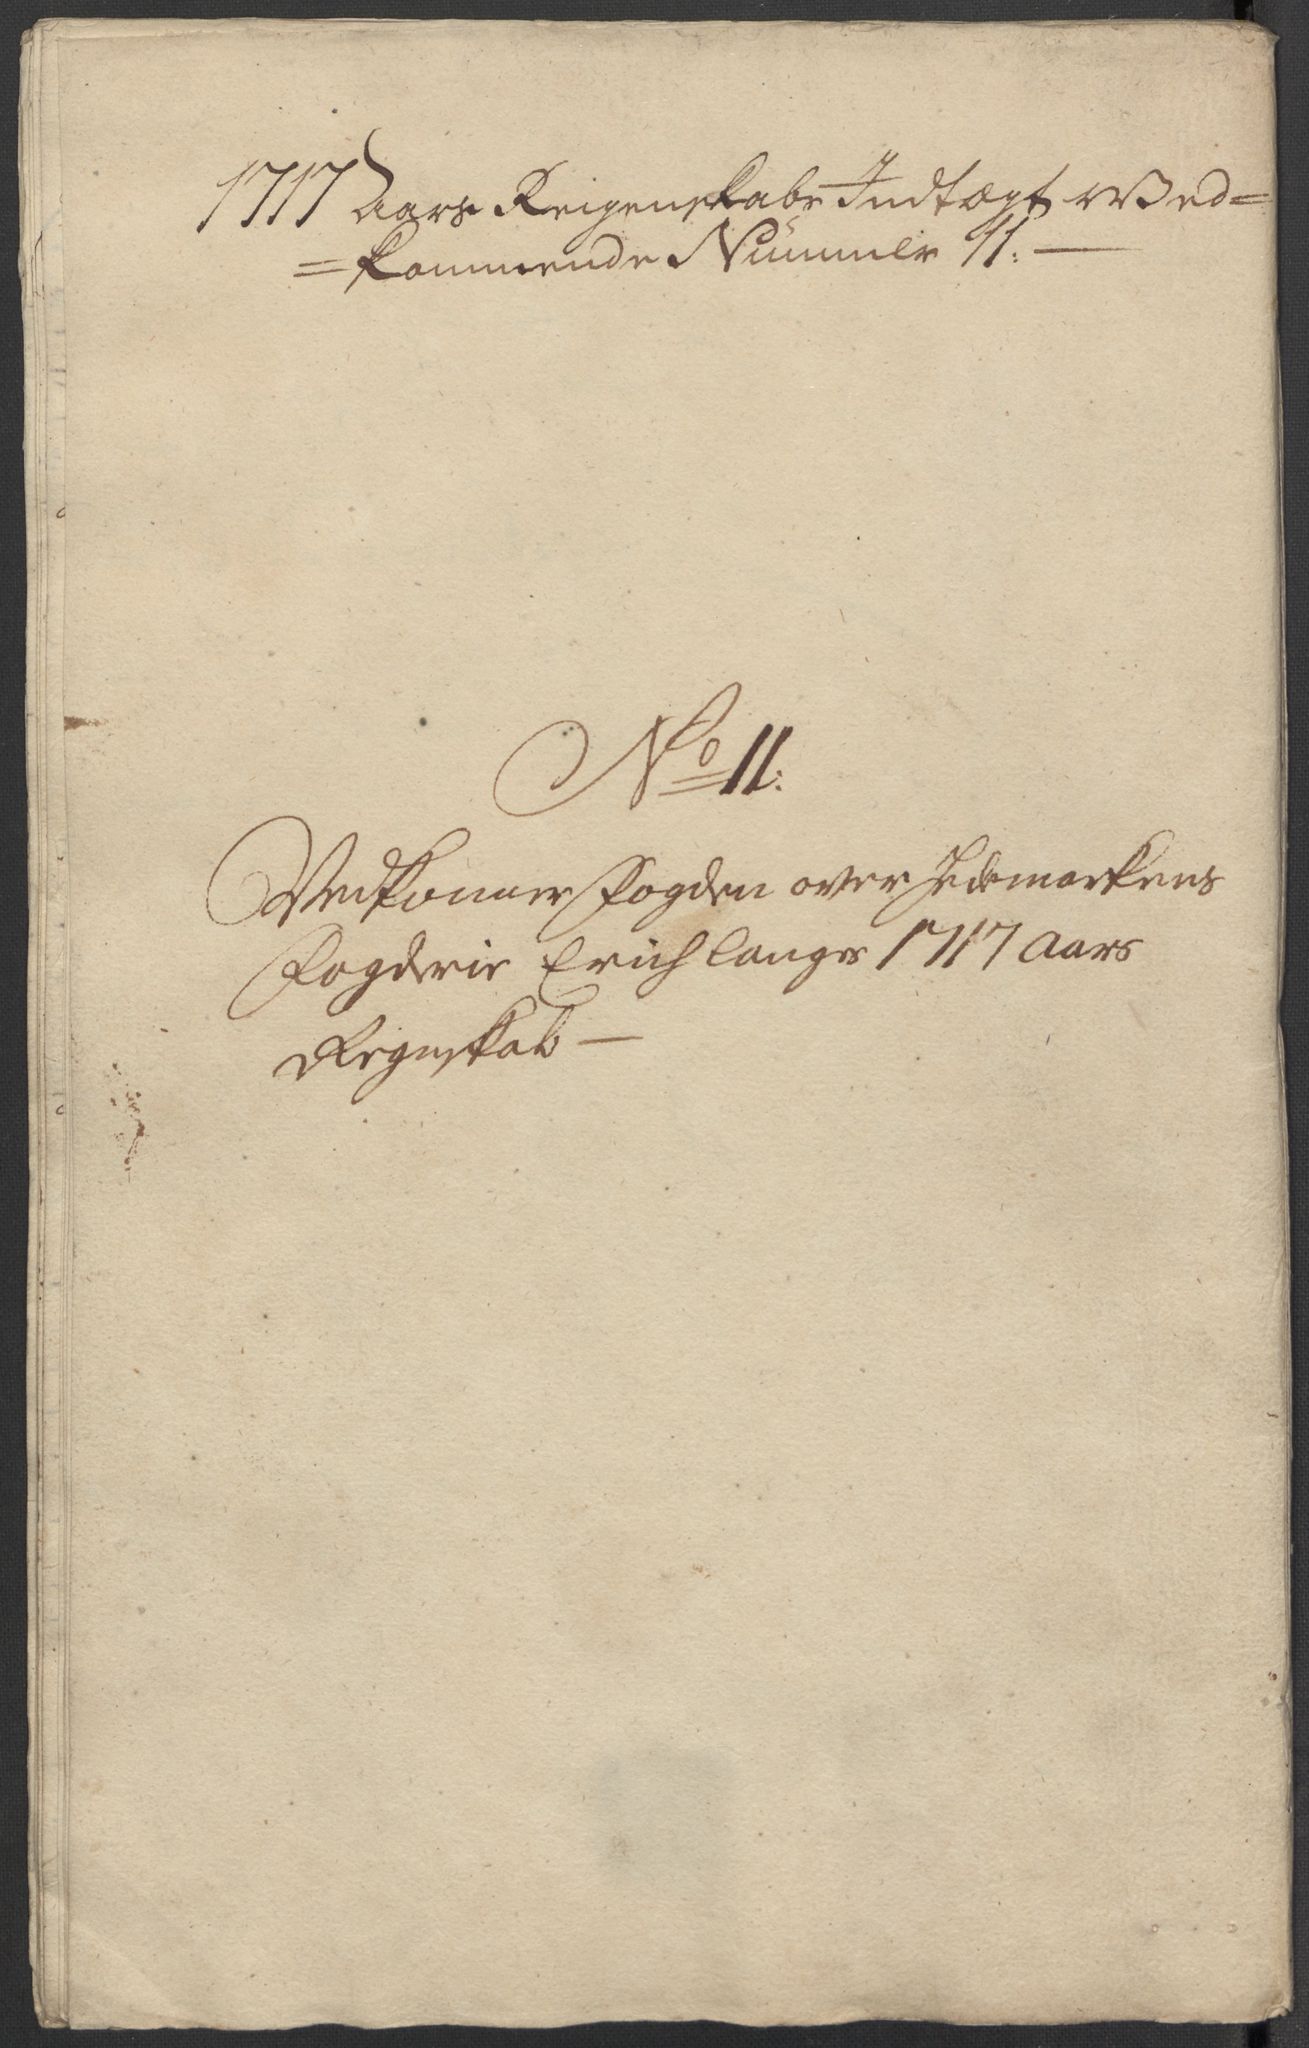 1717 Aars Reigenskabs Indtægt Wed=
=kommende Nummer 11. —
No 11:
Vedkommer Fogden over Hedemarkens
Fogderie Erich Langes 1717 Aars
Regnskab —